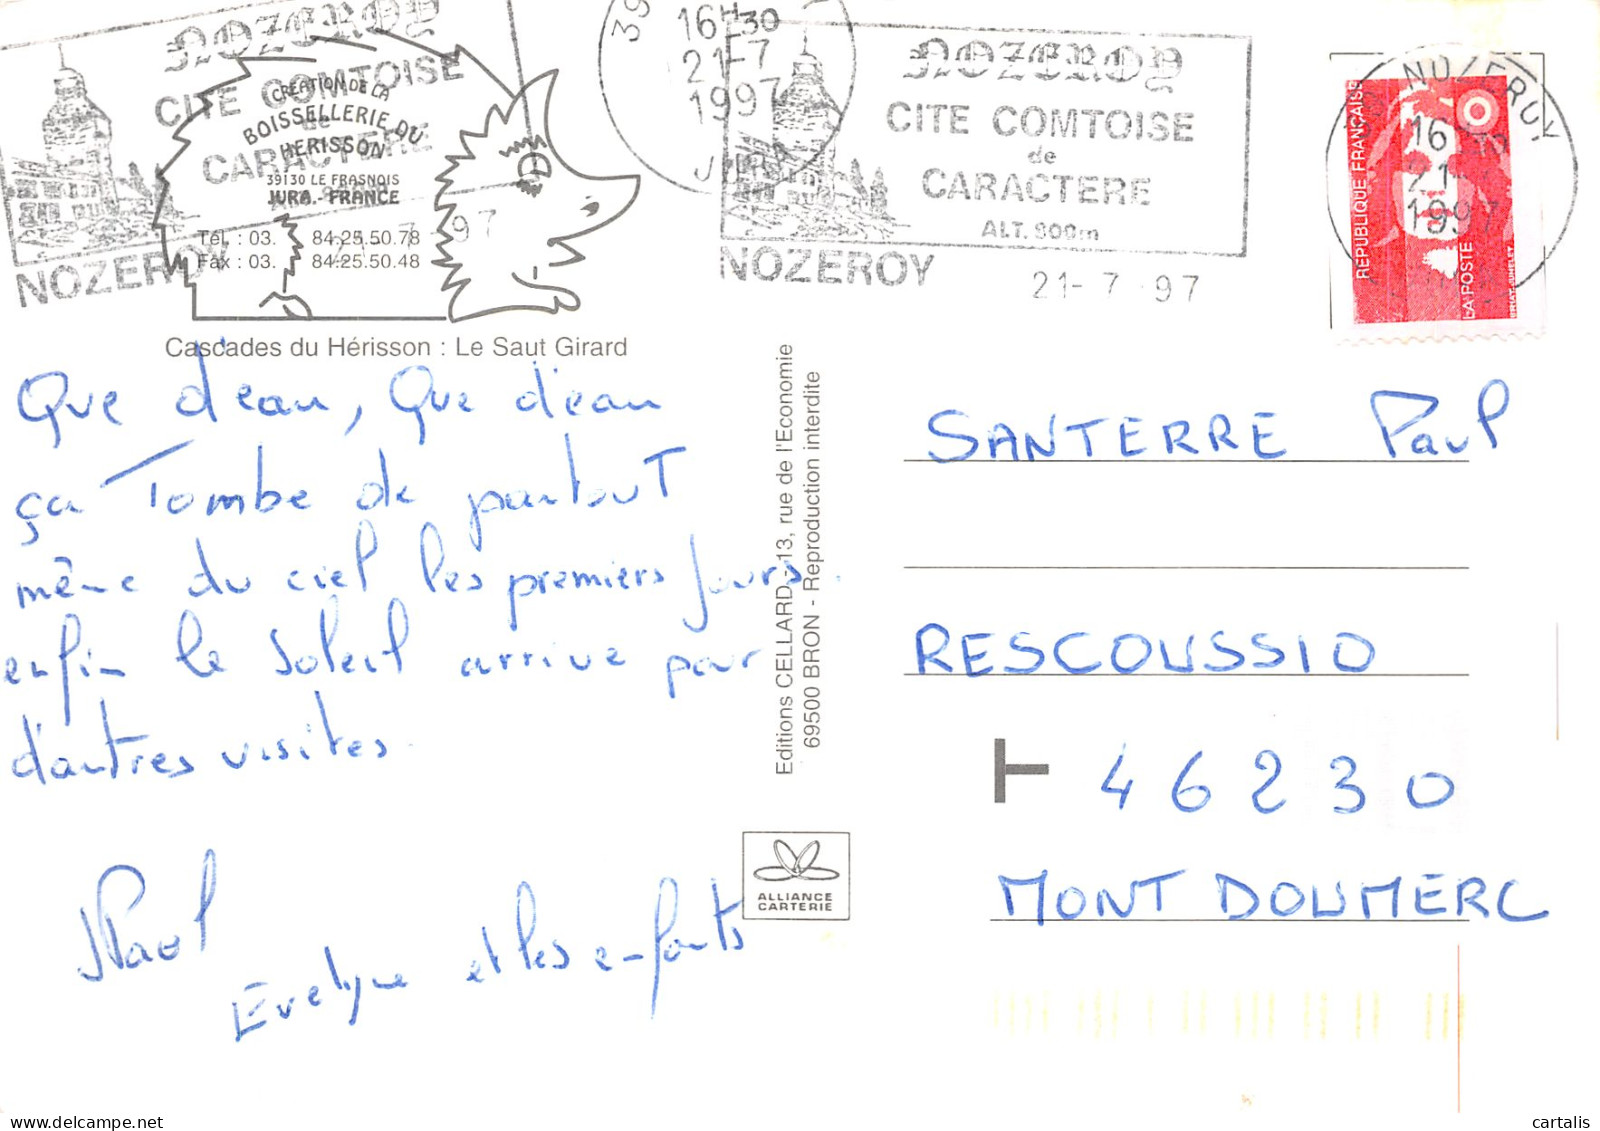 NOZEROY
CITE COMTOISE
de
CARACTERE
NOZEROY
7-97
CREATION DE LA
BOISSELLERIE DU
HERISSON
39130 LE FRASNOIS
JURA - FRANCE
Tél. : 03. 84-25.50.78
Fax : 03. 84-25.50.48
Cascades du Hérisson : Le Saut Girard
39
16H30
21-7
1997
JURA
NOZEROY
CITE COMTOISE
de
CARACTERE
ALT. 900m
NOZEROY
21-7 97
NOZEROY
16
21-
1997
REPUBLIQUE FRANÇAISE
LA POSTE
Que d'eau, Que d'eau
ça Tombe de partout
même du ciel les premiers jours.
enfin le soleil arrive pour
d'autres visites.
Evelyne et les enfants
Editions CELLARD - 13, rue de l'Economie
69500 BRON - Reproduction interdite
ALLIANCE
CARTERIE
SANTERRE Paul
RESCOUSSIO
T 46230
MONT DOUMERC
cartalis